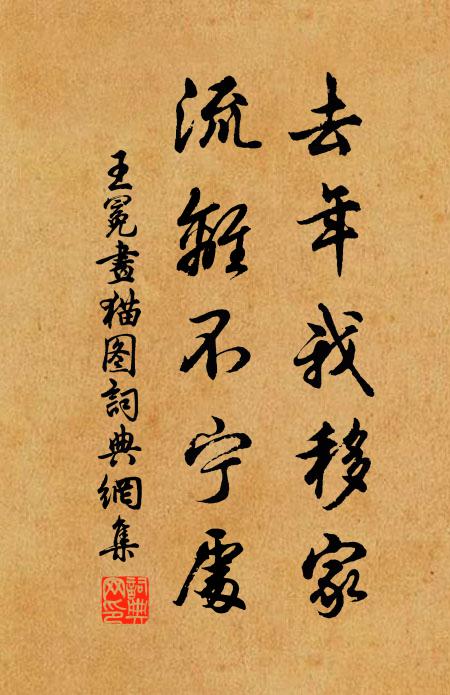 去年我移家
流離不宁處
王冕畫猫图詞典網集
詞典网印